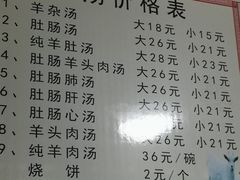 汤价格表
1、羊杂汤 大18元 小15元
2、肚肠汤 大26元 小21元
3、纯羊肚汤 大28元 小23元
4、肚肠羊头肉汤 大26元 小21元
5、肚肠肺汤 大26元 小21元
6、肚肠肝汤 大26元 小21元
7、肚肠心汤 大26元 小21元
8、羊头肉汤 大26元 小21元
9、纯羊肉汤 36元/碗
烧饼 2元/个